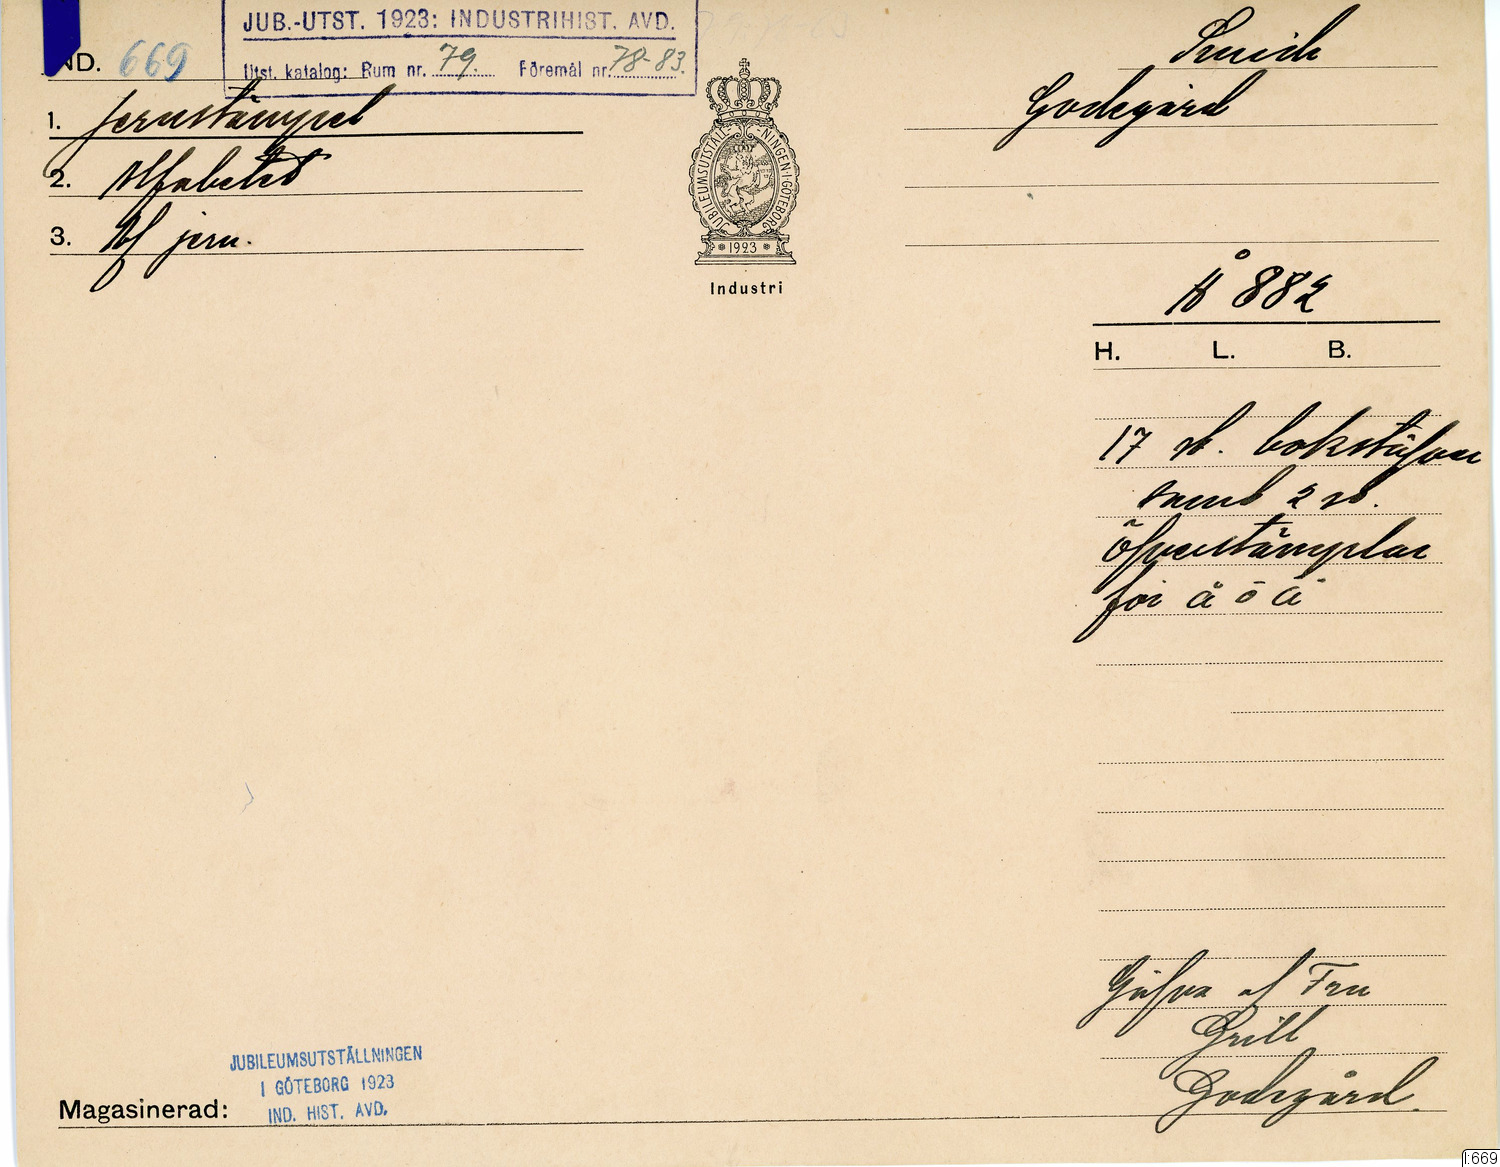 JUB.-UTST. 1923: INDUSTRIHIST. AVD.
IND. 669
Utst. katalog: Rum nr. 79. Föremål nr. 78-83.
1. Jernstämpel
2. Alfabetet
3. Af jern.
JUBILEUMSUTSTÄLLNINGEN·I·GÖTEBORG
1923
Industri
Smide
Godegård
Å 882
H. L. B.
17 st. bokstäfver
samt 2 st.
öfverstämplar
för å ö ä
Gåfva af Fru
Grill
Godegård.
JUBILEUMSUTSTÄLLNINGEN
I GÖTEBORG 1923
IND. HIST. AVD.
Magasinerad:
I:669